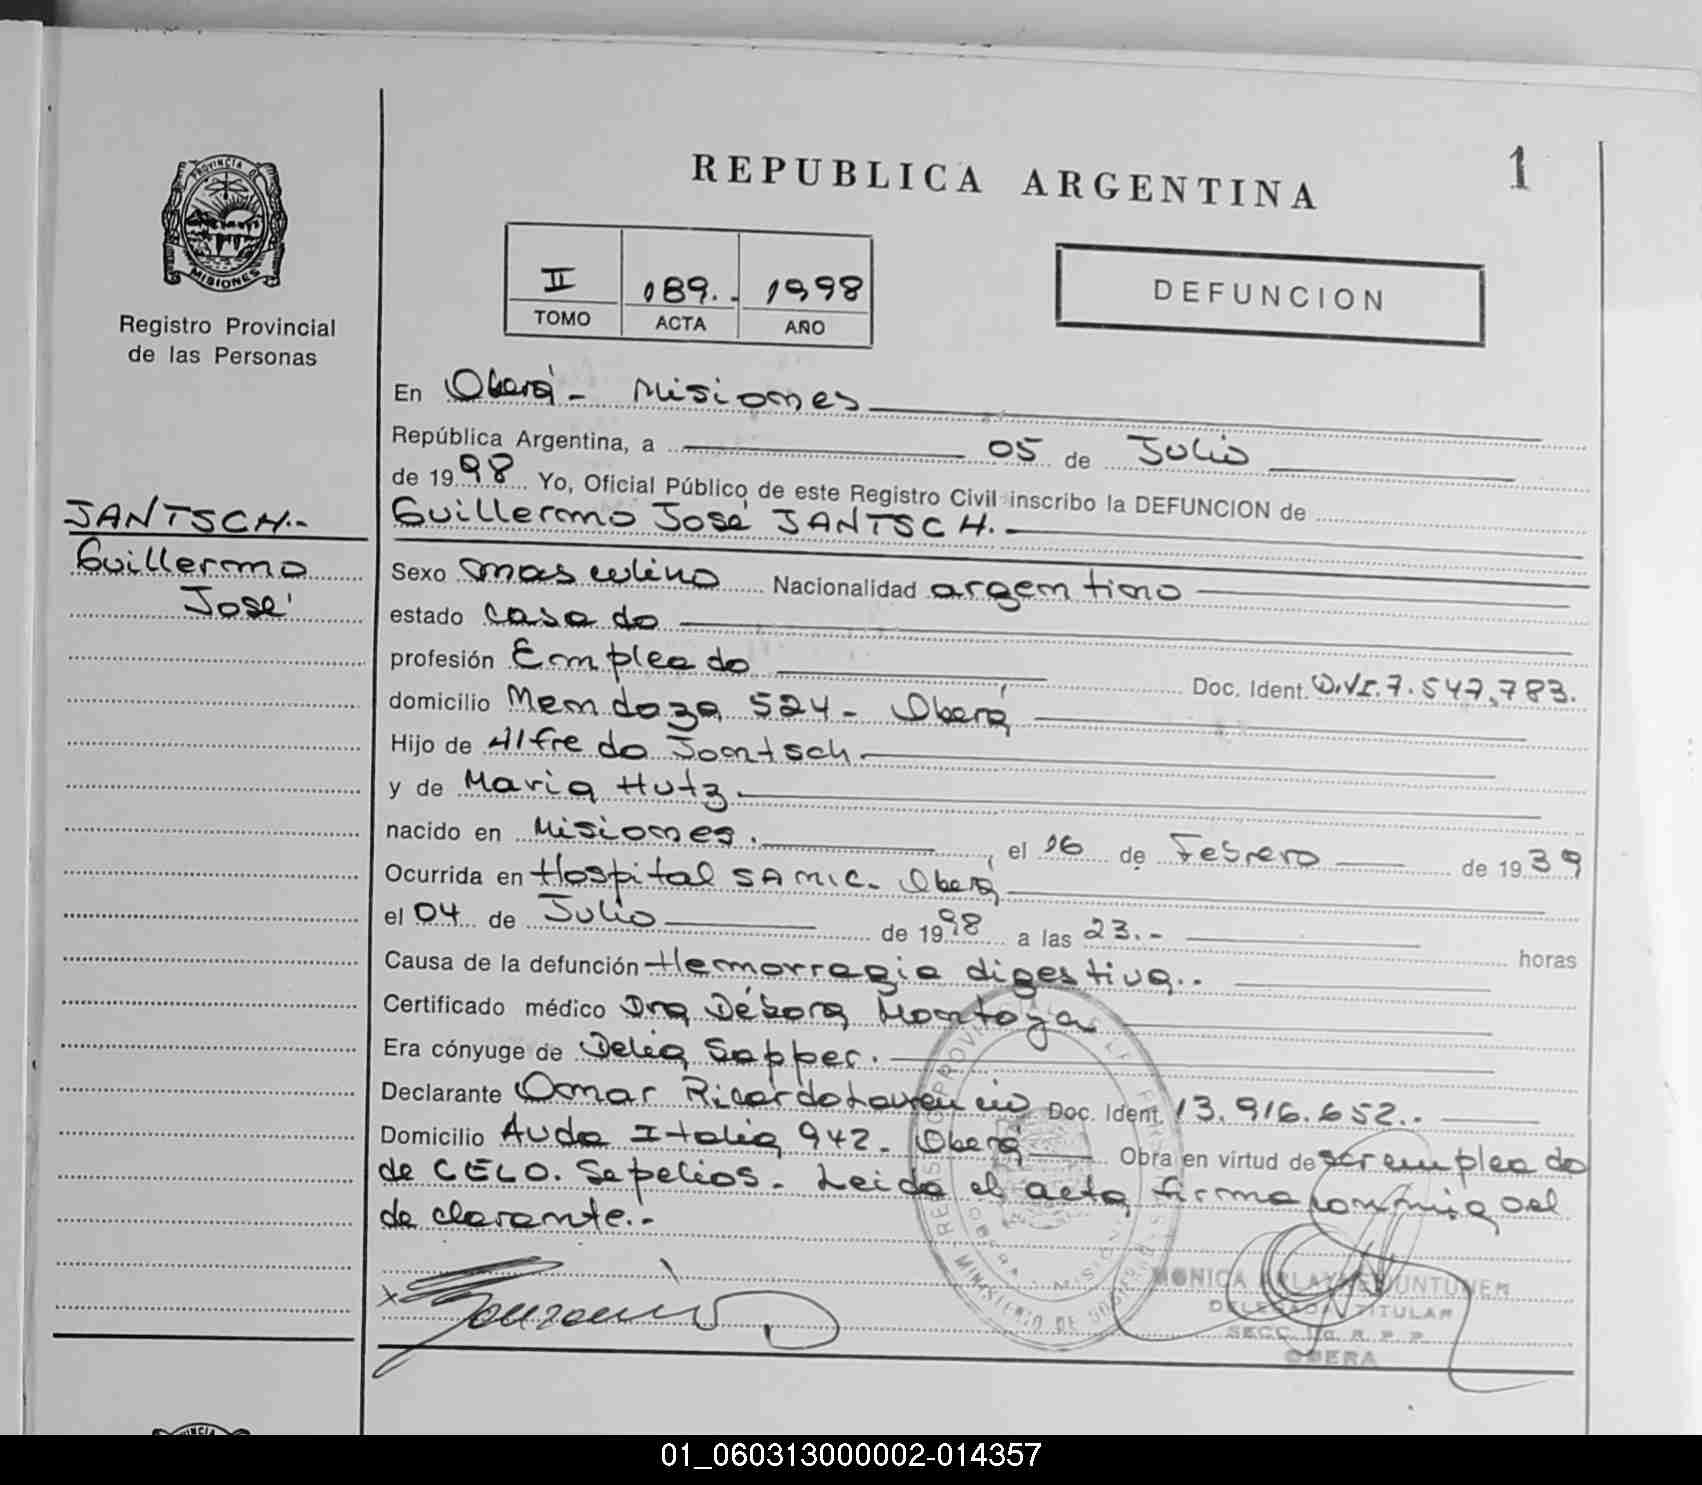 REPUBLICA ARGENTINA
1
PROVINCIA DE
MISIONES
Registro Provincial
de las Personas
II 189.- 1998
TOMO ACTA AÑO
DEFUNCION
JANTSCH.-
Guillermo
José
En Oberá - Misiones
República Argentina, a 05 de Julio
de 1998 Yo, Oficial Público de este Registro Civil inscribo la DEFUNCION de
Guillermo José JANTSCH.
Sexo masculino Nacionalidad argentino
estado casado
profesión Empleado Doc. Ident. D.N.I. 7.547.783.
domicilio Mendoza 524 - Oberá
Hijo de Alfredo Jantsch
y de Maria Hutz.
nacido en Misiones. el 16 de Febrero de 1939
Ocurrida en Hospital SAMIC. Oberá
el 04 de Julio de 1998 a las 23.- horas
Causa de la defunción Hemorragia digestiva..
Certificado médico Dra Débora Montoya
Era cónyuge de Delia Sapper.
Declarante Omar Ricardo Doc. Ident. 13.916.652..
Domicilio Avda Italia 942 - Oberá Obra en virtud de ser empleado
de CELO. Sepelios. Leida el acta firma conmigo el
declarante.-
MONICA
DELEGADA TITULAR
OBERA
01_060313000002-014357